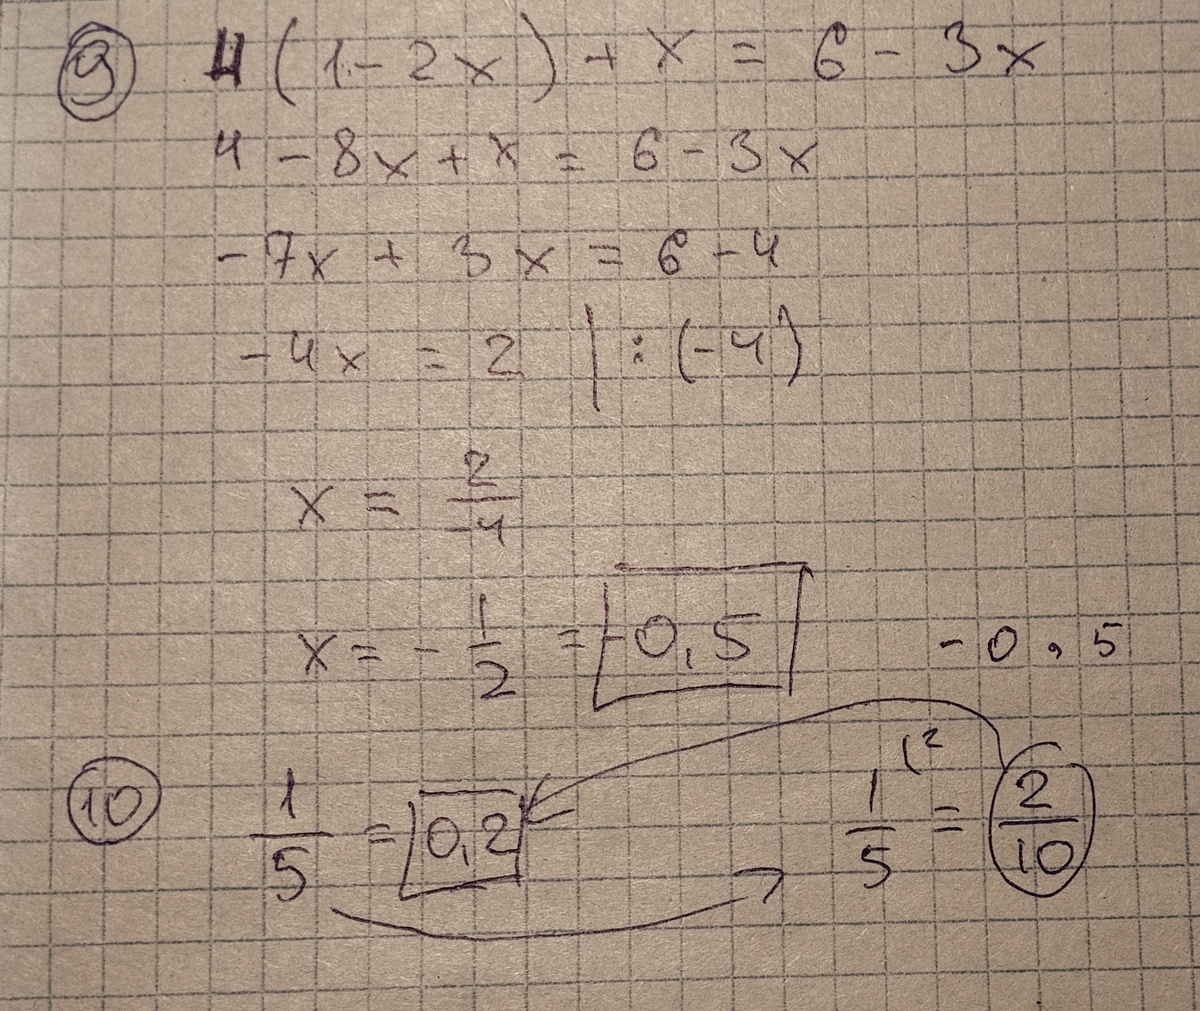 9 4(1-2x)+x=6-3x
4-8x+x=6-3x
-7x+3x=6-4
-4x=2 | :(-4)
x=2/-4
x=-1/2=-0,5 -0,5
10 1/5=0,2 1/5(2=2/10